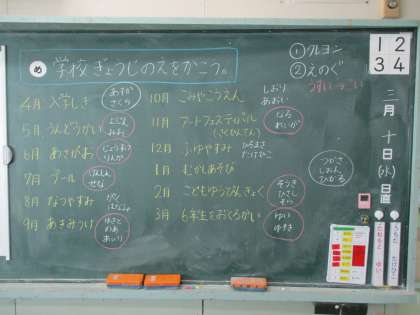 め 学校ぎょうじのえをかこう。
①クレヨン
②えのぐ
うすい→こい
4月 入学しき
あすか
さくら
5月 うんどうかい
6月 あさがお
りんか
7月 プール
せな
8月 なつやすみ
9月 あきみつけ
ゆさと
のあ
あいり
10月 こみやこうえん
しおり
あおい
11月 アートフェスティバル
(さくひんてん)
なる
れいが
12月 ふゆやすみ
ひろまさ
たけひこ
1月 むかしあそび
つかさ
しおん
ひかる
2月 こどもゆうびんきょく
そうき
ひさし
そら
3月 6年生をおくるかい
ゆい
ゆずき
1 2
3 4
三月十日(水)
日直